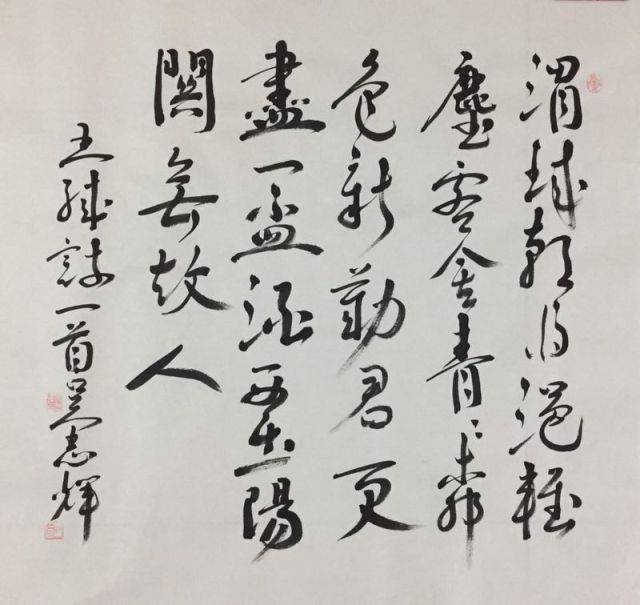 渭城朝雨浥輕
塵客舍青々柳
色新勸君更
盡一盃酒西出陽
關無故人
王維詩一首吳志輝